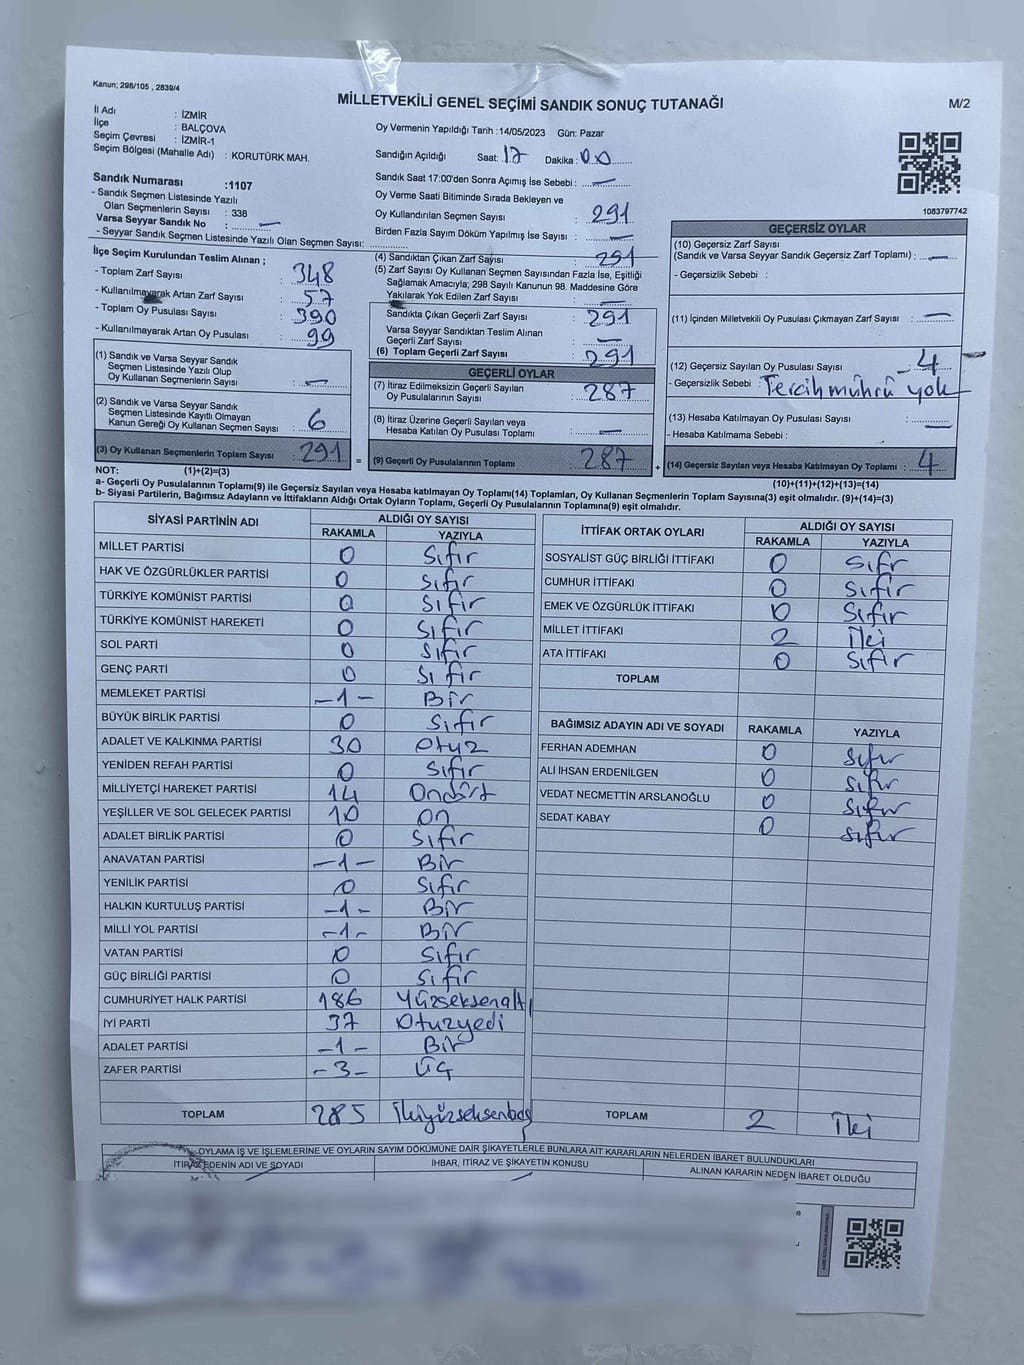 Kanun; 298/105 , 2839/4
MİLLETVEKİLİ GENEL SEÇİMİ SANDIK SONUÇ TUTANAĞI
M/2
İl Adı : İZMİR
İlçe : BALÇOVA
Seçim Çevresi : İZMİR-1
Seçim Bölgesi (Mahalle Adı) : KORUTÜRK MAH.
Sandık Numarası :1107
- Sandık Seçmen Listesinde Yazılı
Olan Seçmenlerin Sayısı : 338
Varsa Seyyar Sandık No : —
- Seyyar Sandık Seçmen Listesinde Yazılı Olan Seçmen Sayısı:
İlçe Seçim Kurulundan Teslim Alınan ;
- Toplam Zarf Sayısı : 348
- Kullanılmayarak Artan Zarf Sayısı : 57
- Toplam Oy Pusulası Sayısı : 390
- Kullanılmayarak Artan Oy Pusulası : 99
(1) Sandık ve Varsa Seyyar Sandık
Seçmen Listesinde Yazılı Olup
Oy Kullanan Seçmenlerin Sayısı : —
(2) Sandık ve Varsa Seyyar Sandık
Seçmen Listesinde Kayıtlı Olmayan
Kanun Gereği Oy Kullanan Seçmen Sayısı : 6
(3) Oy Kullanan Seçmenlerin Toplam Sayısı : 291
Oy Vermenin Yapıldığı Tarih :14/05/2023 Gün: Pazar
Sandığın Açıldığı Saat: 17 Dakika : 00
Sandık Saat 17:00'den Sonra Açımış İse Sebebi : —
Oy Verme Saati Bitiminde Sırada Bekleyen ve
Oy Kullandırılan Seçmen Sayısı : 291
Birden Fazla Sayım Döküm Yapılmış İse Sayısı : —
(4) Sandıktan Çıkan Zarf Sayısı : 291
(5) Zarf Sayısı Oy Kullanan Seçmen Sayısından Fazla İse, Eşitliği
Sağlamak Amacıyla; 298 Sayılı Kanunun 98. Maddesine Göre
Yakılarak Yok Edilen Zarf Sayısı : —
Sandıkta Çıkan Geçerli Zarf Sayısı : 291
Varsa Seyyar Sandıktan Teslim Alınan
Geçerli Zarf Sayısı : —
(6) Toplam Geçerli Zarf Sayısı : 291
GEÇERLİ OYLAR
(7) İtiraz Edilmeksizin Geçerli Sayılan
Oy Pusulalarının Sayısı : 287
(8) İtiraz Üzerine Geçerli Sayılan veya
Hesaba Katılan Oy Pusulası Toplamı : —
= (9) Geçerli Oy Pusulalarının Toplamı : 287
1083797742
GEÇERSİZ OYLAR
(10) Geçersiz Zarf Sayısı
(Sandık ve Varsa Seyyar Sandık Geçersiz Zarf Toplamı) : —
- Geçersizlik Sebebi :
(11) İçinden Milletvekili Oy Pusulası Çıkmayan Zarf Sayısı : —
(12) Geçersiz Sayılan Oy Pusulası Sayısı : 4
- Geçersizlik Sebebi : Tercih mührü yok
(13) Hesaba Katılmayan Oy Pusulası Sayısı : —
- Hesaba Katılmama Sebebi :
+ (14) Geçersiz Sayılan veya Hesaba Katılmayan Oy Toplamı : 4
NOT: (1)+(2)=(3)
(10)+(11)+(12)+(13)=(14)
a- Geçerli Oy Pusulalarının Toplamı(9) ile Geçersiz Sayılan veya Hesaba katılmayan Oy Toplamı(14) Toplamları, Oy Kullanan Seçmenlerin Toplam Sayısına(3) eşit olmalıdır. (9)+(14)=(3)
b- Siyasi Partilerin, Bağımsız Adayların ve İttifakların Aldığı Ortak Oyların Toplamı, Geçerli Oy Pusulalarının Toplamına(9) eşit olmalıdır.
SİYASİ PARTİNİN ADI ALDIĞI OY SAYISI
RAKAMLA YAZIYLA
MİLLET PARTİSİ 0 Sıfır
HAK VE ÖZGÜRLÜKLER PARTİSİ 0 Sıfır
TÜRKİYE KOMÜNİST PARTİSİ 0 Sıfır
TÜRKİYE KOMÜNİST HAREKETİ 0 Sıfır
SOL PARTİ 0 Sıfır
GENÇ PARTİ 0 Sıfır
MEMLEKET PARTİSİ -1- Bir
BÜYÜK BİRLİK PARTİSİ 0 Sıfır
ADALET VE KALKINMA PARTİSİ 30 Otuz
YENİDEN REFAH PARTİSİ 0 Sıfır
MİLLİYETÇİ HAREKET PARTİSİ 14 Ondört
YEŞİLLER VE SOL GELECEK PARTİSİ 10 On
ADALET BİRLİK PARTİSİ 0 Sıfır
ANAVATAN PARTİSİ -1- Bir
YENİLİK PARTİSİ 0 Sıfır
HALKIN KURTULUŞ PARTİSİ -1- Bir
MİLLİ YOL PARTİSİ -1- Bir
VATAN PARTİSİ 0 Sıfır
GÜÇ BİRLİĞİ PARTİSİ 0 Sıfır
CUMHURİYET HALK PARTİSİ 186 Yüzseksenaltı
İYİ PARTİ 37 Otuzyedi
ADALET PARTİSİ -1- Bir
ZAFER PARTİSİ -3- Üç
TOPLAM 285 İkiyüzseksenbeş
İTTİFAK ORTAK OYLARI ALDIĞI OY SAYISI
RAKAMLA YAZIYLA
SOSYALİST GÜÇ BİRLİĞİ İTTİFAKI 0 Sıfr
CUMHUR İTTİFAKI 0 Sıfır
EMEK VE ÖZGÜRLÜK İTTİFAKI 0 Sıfır
MİLLET İTTİFAKI 2 İki
ATA İTTİFAKI 0 Sıfır
TOPLAM
BAĞIMSIZ ADAYIN ADI VE SOYADI RAKAMLA YAZIYLA
FERHAN ADEMHAN 0 Sıfır
ALİ İHSAN ERDENİLGEN 0 Sıfır
VEDAT NECMETTİN ARSLANOĞLU 0 Sıfır
SEDAT KABAY 0 Sıfır
TOPLAM 2 İki
OYLAMA İŞ VE İŞLEMLERİNE VE OYLARIN SAYIM DÖKÜMÜNE DAİR ŞİKAYETLERLE BUNLARA AİT KARARLARIN NELERDEN İBARET BULUNDUKLARI
İTİRAZ EDENİN ADI VE SOYADI İHBAR, İTİRAZ VE ŞİKAYETİN KONUSU ALINAN KARARIN NEDEN İBARET OLDUĞU